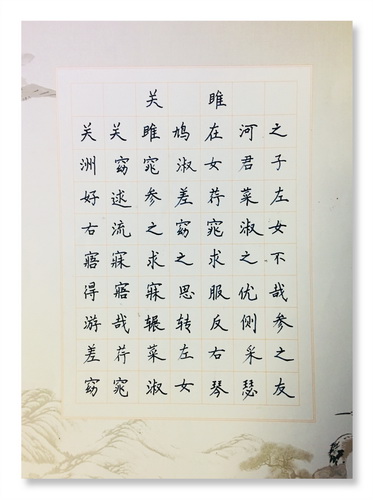 关雎
关关雎鸠在河之
洲窈窕淑女君子
好逑参差荇菜左
右流之窈窕淑女
寤寐求之求之不
得寤寐思服优哉
游哉辗转反侧参
差荇菜左右采之
窈窕淑女琴瑟友